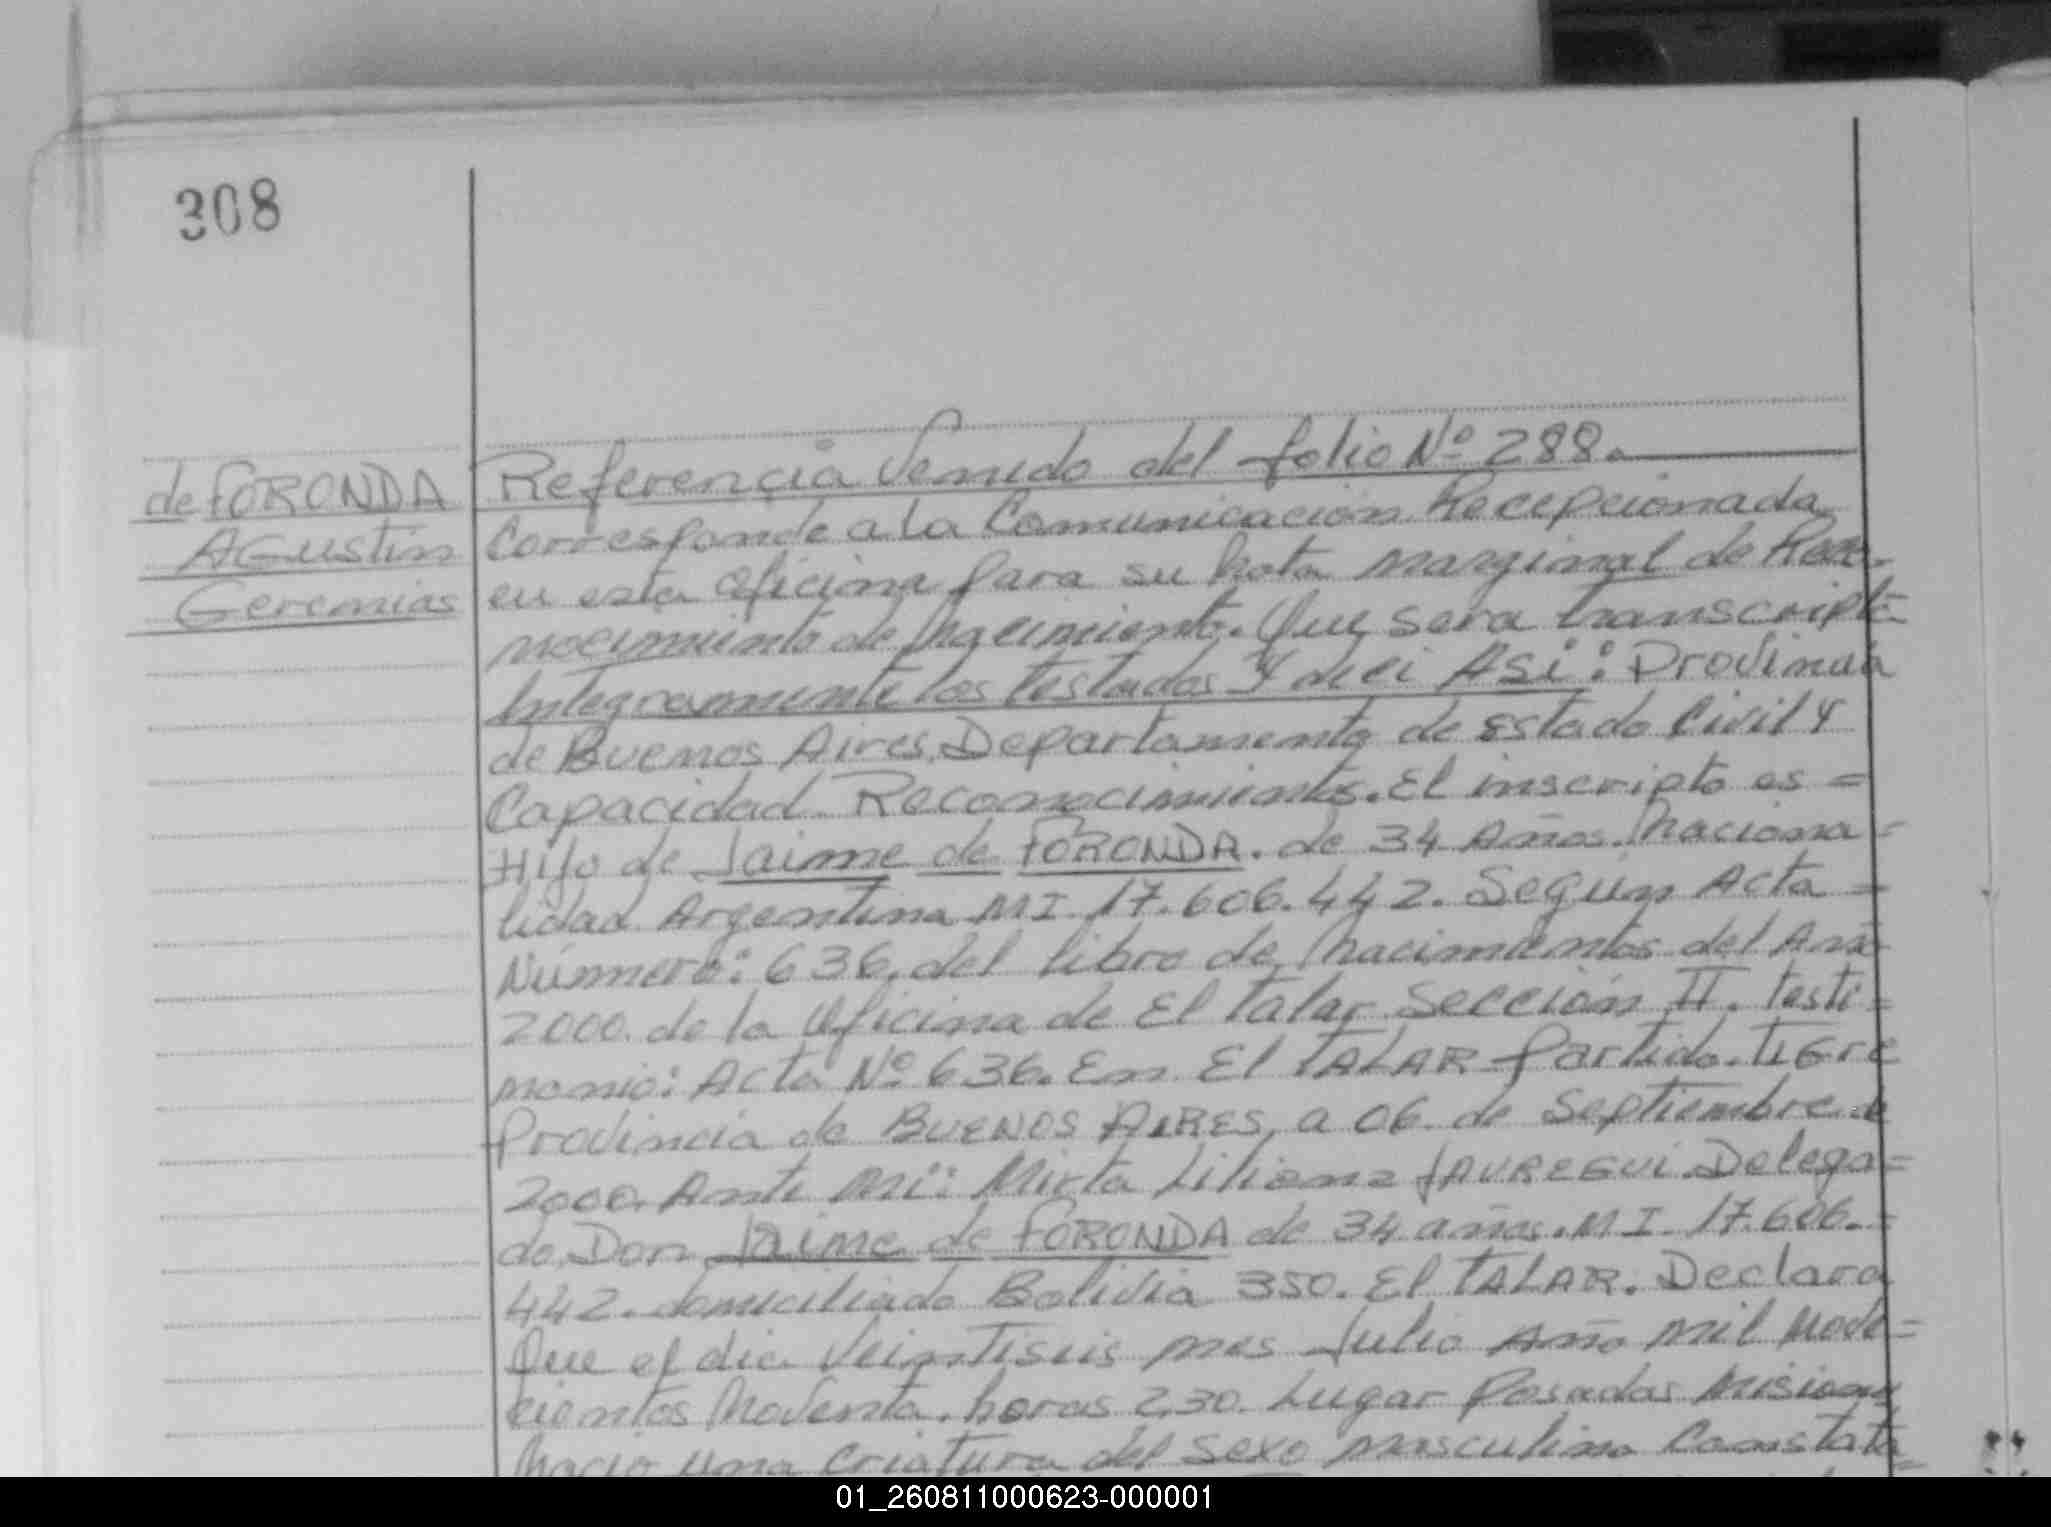 308
de FORONDA
Agustin
Geremias
Referencia Venido del folio Nº 288.
Corresponde a la Comunicación Recepcionada
en esta oficina para su Nota marginal de Reco-
nocimiento de Nacimiento. Que sera transcripto
Integramente los testados Y deci ASi: Provincia
de Buenos Aires, Departamento de Estado Civil Y
Capacidad Reconocimientos. El inscripto es =
Hijo de Jaime de FORONDA. de 34 Años. Naciona=
lidad Argentina MI 17.606.442. Según Acta =
Número: 636, del libro de Nacimientos del Año
2000. de la oficina de El Talar Sección II. Testi=
monio: Acta Nº 636. En El TALAR Partido. TIGre
Provincia de BUENOS AIRES, a 06 de Septiembre de
2000. Ante Mi: Mirta Liliana JAUREGUI Delega=
do, Don Jaime de FORONDA de 34 años. MI 17.606.=
442. domiciliado Bolivia 350. El TALAR. Declara
Que el dia Veintiseis mes Julio Año mil Nove=
cientos Noventa. horas 2,30. Lugar Posadas Misiones
Nacio una criatura del sexo masculino Constata=
01_260811000623-000001